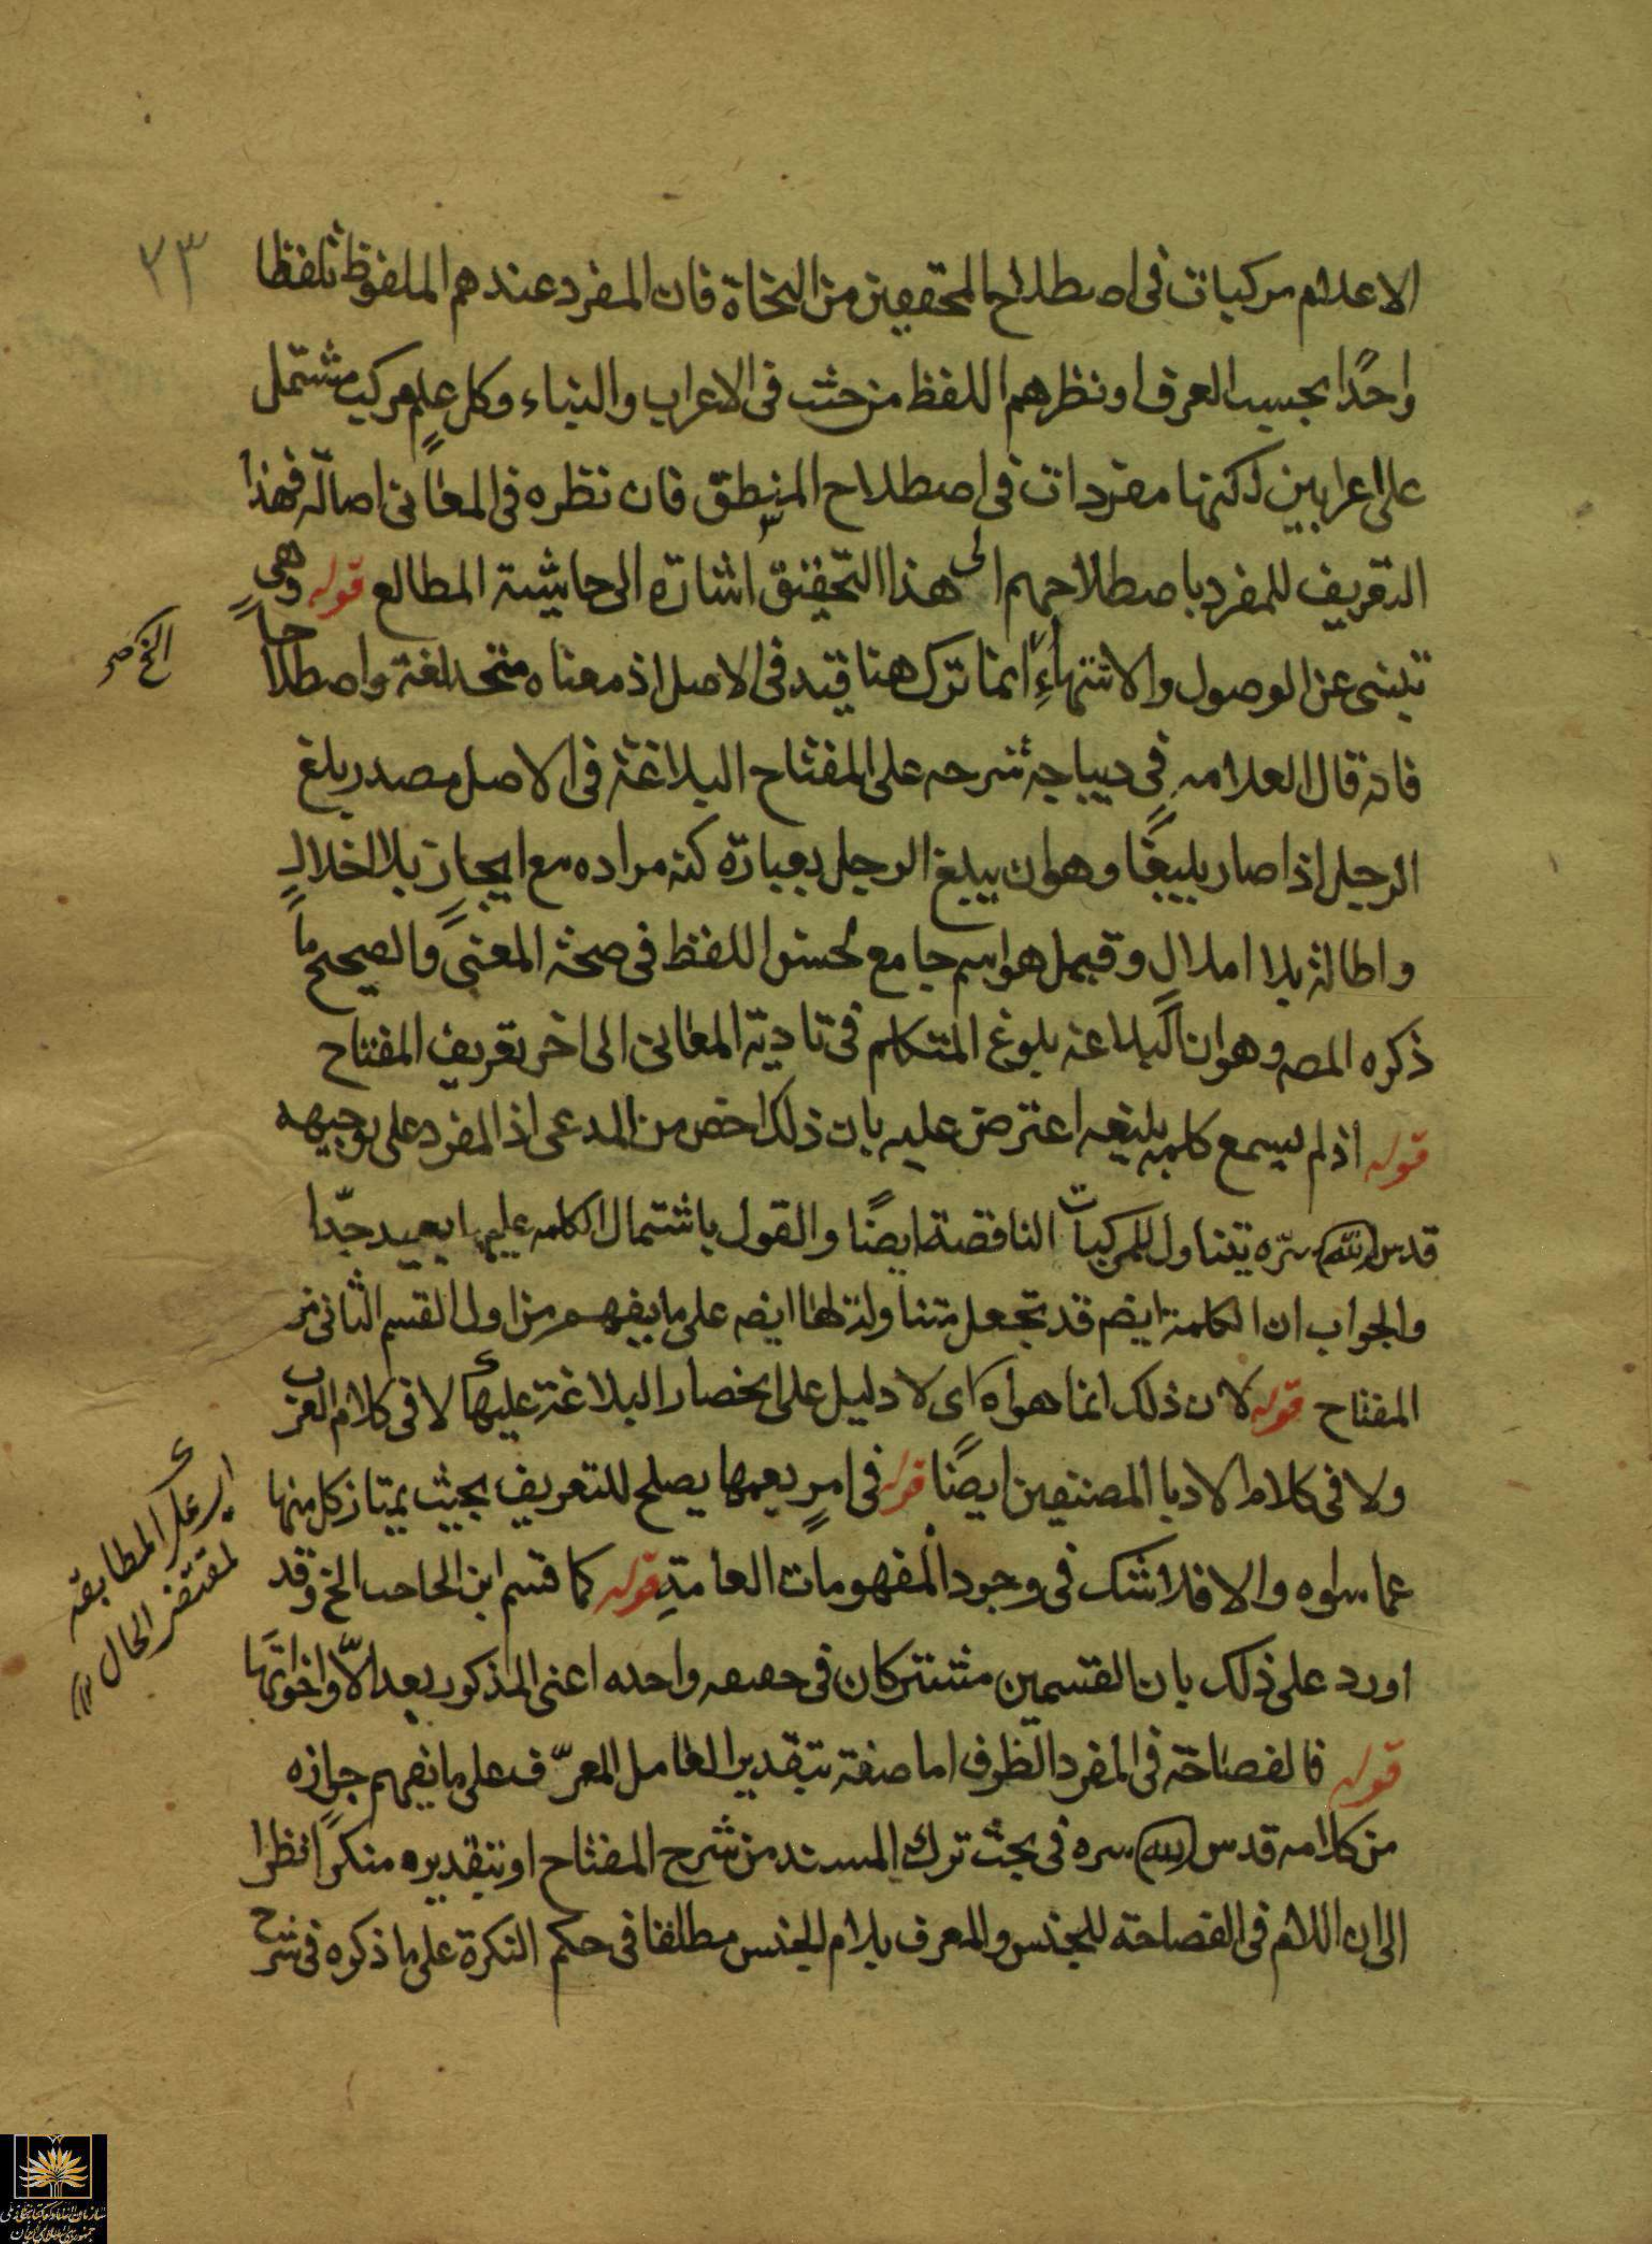 ٢٣
الاعلام مركبات فى اصطلاح المحققين من النحاة فان المفرد عندهم الملفوظ تلفظا
واحدًا بحسب العرف او نظرهم اللفظ من حيث فى الاعراب والبناء وكل علم مركب مشتمل
على اعرابين لكنها مفردات فى اصطلاح المنطق فان نظره فى المعانى اصالة فهذا
التعريف للمفرد باصطلاحهم الى هذا التحقيق اشارة الى حاشية المطالع قوله وهى
تنبئ عن الوصول والانتهاء انما ترك هنا قيد فى الاصل اذ معناه متحد لغة واصطلاحا
فانه قال العلامه فى ديباجة شرحه على المفتاح البلاغة فى الاصل مصدر بلغ
الرجل اذا صار بليغا وهو ان يبلغ الرجل بعبارة كنه مراده مع ايجاز بلا اخلال
واطالة بلا املال وقيل هو اسم جامع لحسن اللفظ فى صحة المعنى والصحيح ما
ذكره المصه وهو ان البلاغه بلوغ المتكلم فى تادية المعانى الى اخر تعريف المفتاح
قوله اذ لم يسمع كلمه بليغه اعترض عليه بان ذلك اخص من المدعى اذ المفرد على توجيهه
قدس الله سره يتناول للمركبات الناقصة ايضًا والقول باشتمال الكلمه عليها بعيد جدّا
والجواب ان الكلمة ايضم قد تجعل متناولة لها ايضه على ما يفهم من اول القسم الثانى من
المفتاح قوله لان ذلك انما هو اه اى لا دليل على انحصار البلاغة عليها لا فى كلام العرب
ولا فى كلام الادبا المصنفين ايضًا قوله فى امر يعمها يصلح للتعريف بحيث يمتاز كل منها
عما سواه والا فلا شك فى وجود المفهومات العامة قوله كما قسم ابن الحاجب الخ وقد
اورد على ذلك بان القسمين مشتركان فى حصه واحده اعنى المذكور بعد الّا واخواتها
قوله فالفصاحة فى المفرد الظرف اما صفة بتقدير العامل المعرّف على ما يفهم جوازه
من كلامه قدس الله سره فى بحث ترك المسند من شرح المفتاح او بتقديره منكرًا نظرا
الى ان اللام فى الفصاحة للجنس والمعرف بلام الجنس مطلقا فى حكم النكرة على ما ذكره فى شرح
اى على المطابقة
لمقتضى الحال